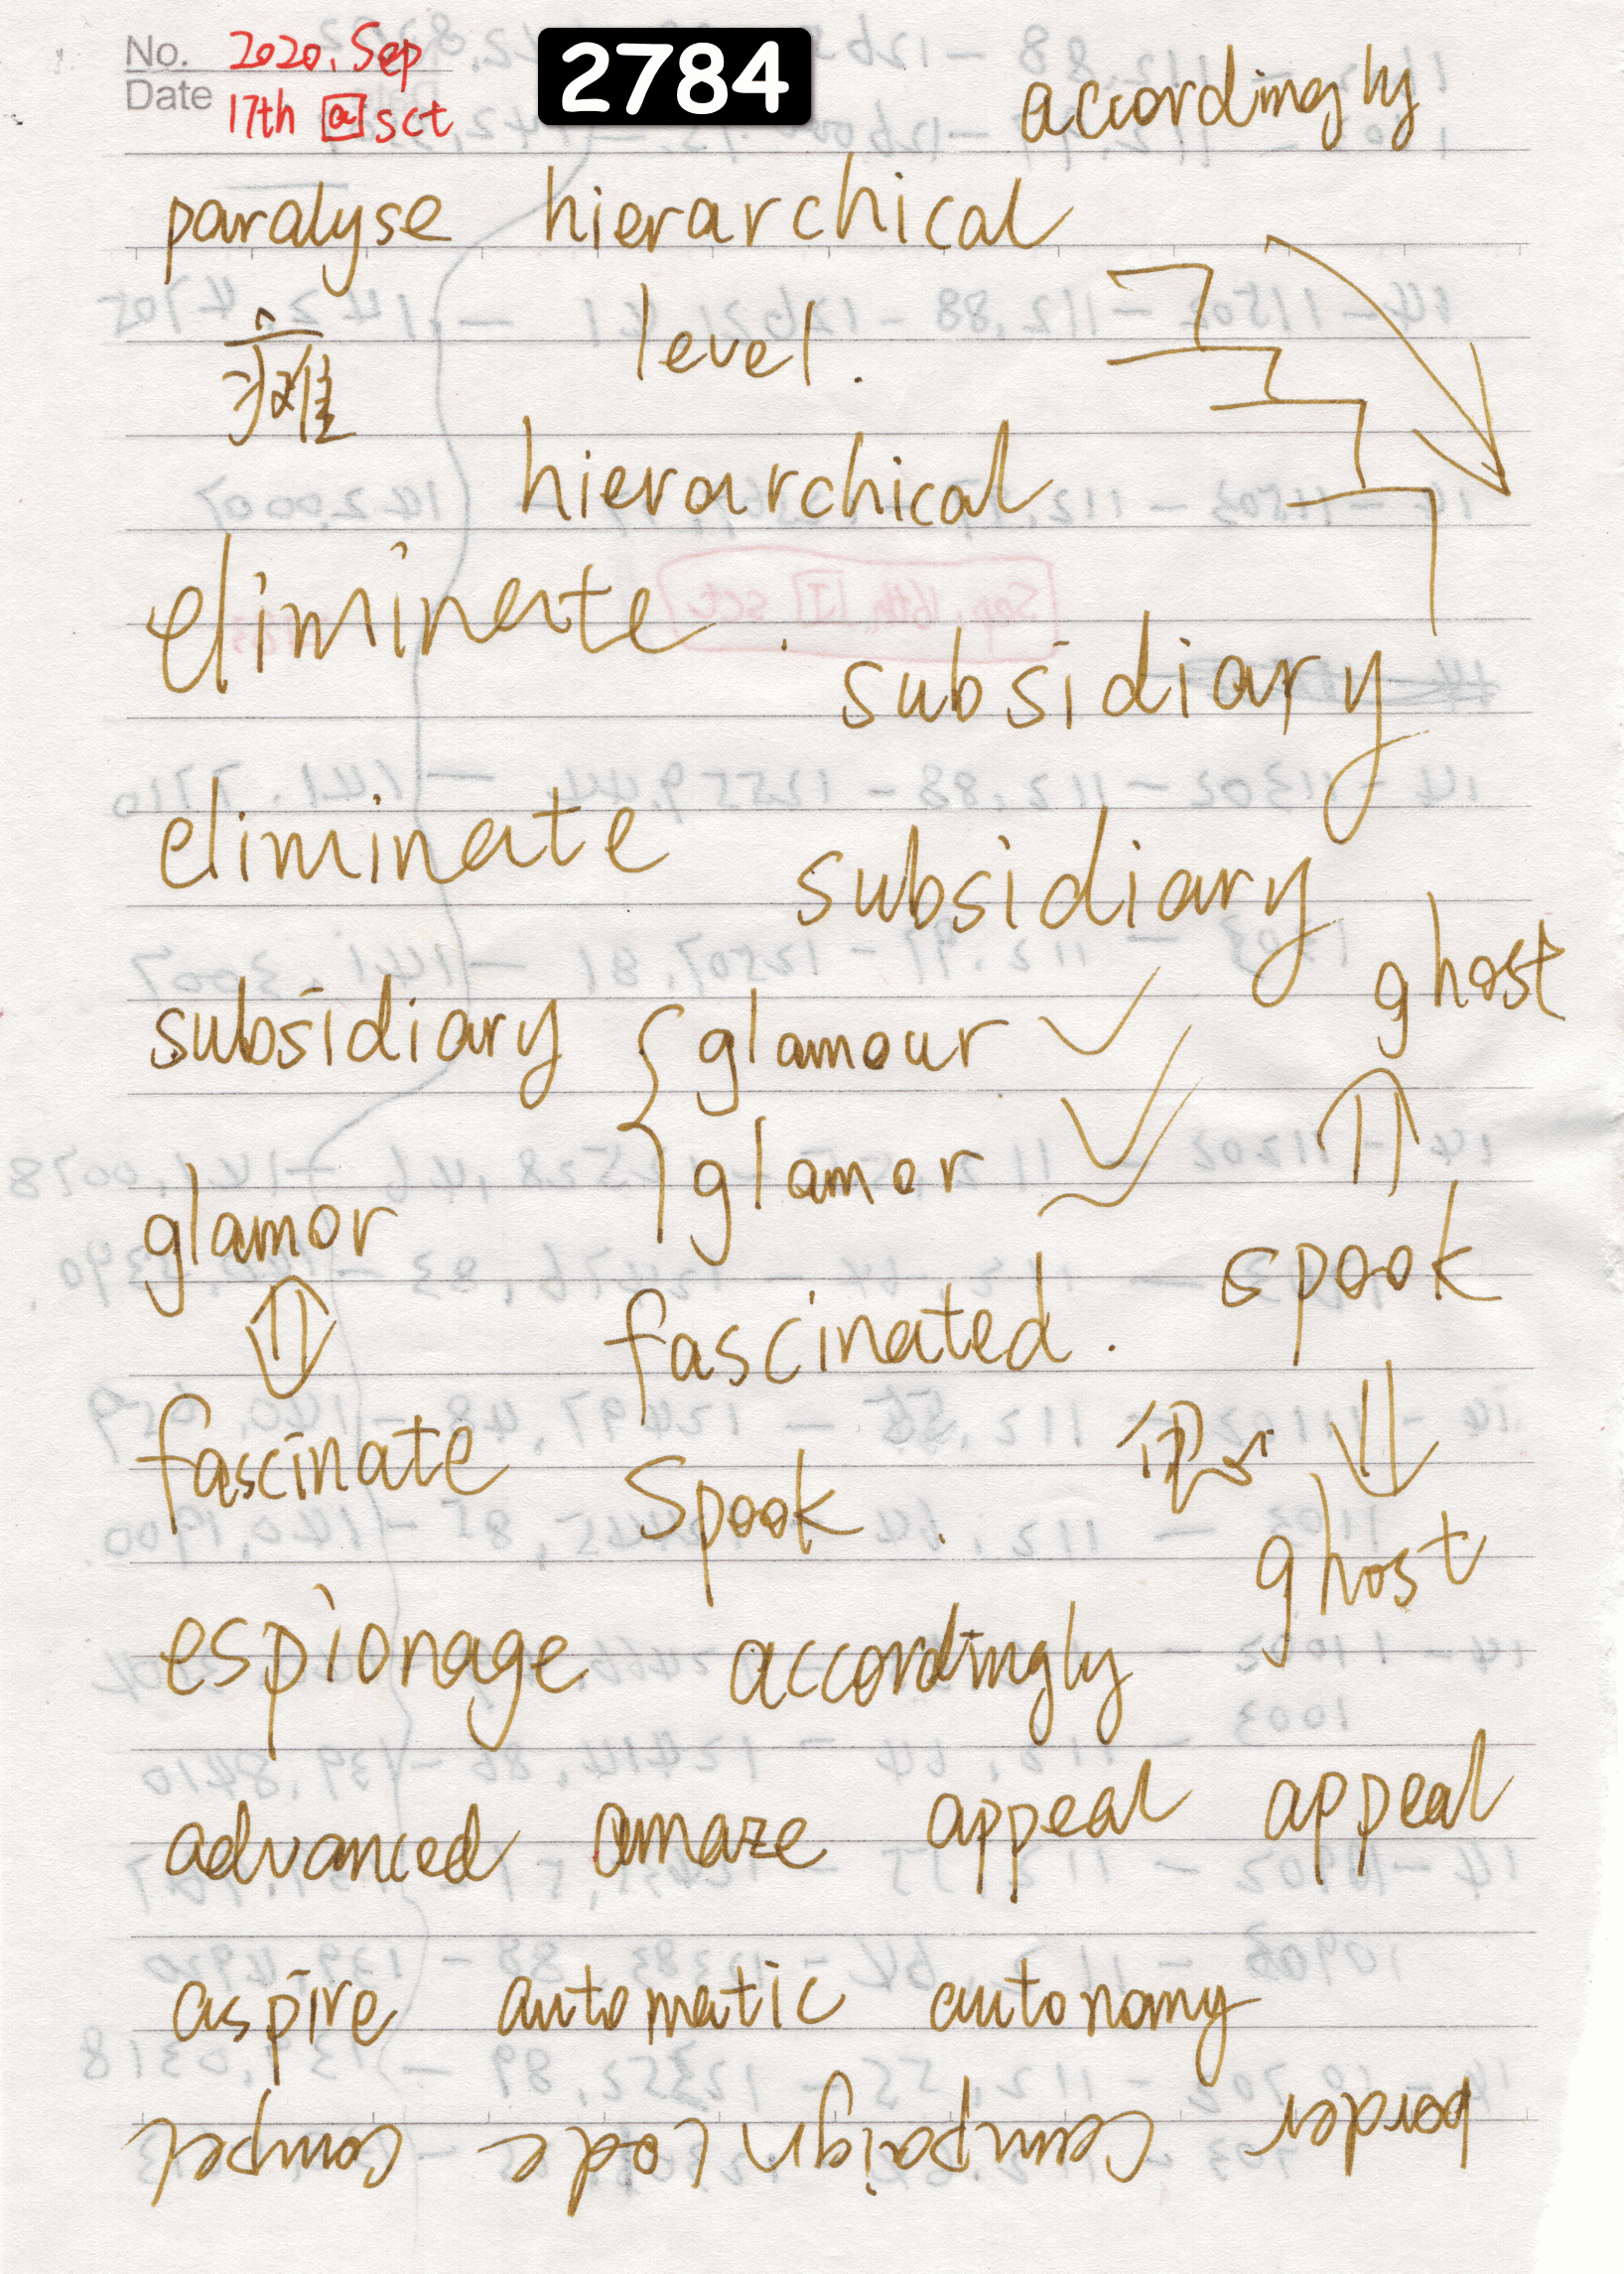 No. 2020. Sep
Date 17th a sct
2784
accordingly
paralyse hierarchical
瘫 level.
hierarchical
eliminate.
subsidiary
eliminate
subsidiary
ghost
subsidiary glamour
glamor
glamor
spook
fascinated.
fascinate
spook.
ghost
espionage accordingly
advanced amaze appeal appeal
aspire automatic autonomy
border campaign code compel